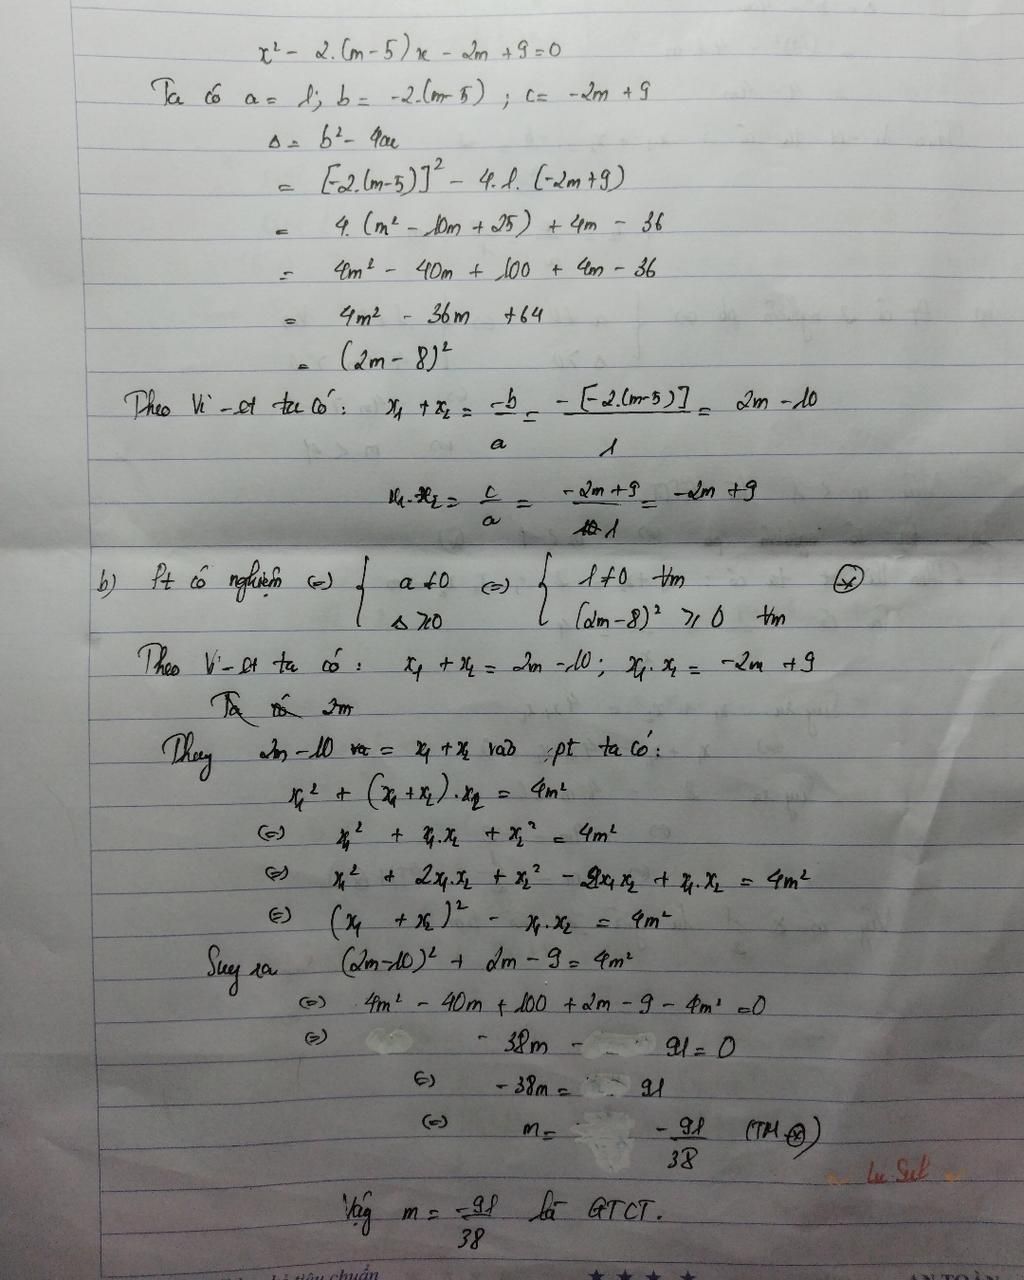 x² - 2.(m-5)x - 2m + 9 = 0
Ta có a = 1; b = -2.(m-5) ; c = -2m + 9
Δ = b² - 4ac
= [-2.(m-5)]² - 4.1.(-2m+9)
= 4.(m² - 10m + 25) + 4m - 36
= 4m² - 40m + 100 + 4m - 36
= 4m² - 36m + 64
= (2m - 8)²
Theo Vi-et ta có: x₁ + x₂ = -b/a = -[-2.(m-5)]/1 = 2m - 10
x₁.x₂ = c/a = -2m+9/1 = -2m + 9
b) Pt có nghiệm (=) { a ≠ 0 (=) { 1 ≠ 0 ∀m (*)
Δ ≥ 0 (2m-8)² ≥ 0 ∀m
Theo Vi-et ta có: x₁ + x₂ = 2m - 10; x₁.x₂ = -2m + 9
Ta có 2m
Thay 2m - 10 = x₁ + x₂ vào pt ta có:
x₁² + (x₁ + x₂).x₂ = 4m²
(=) x₁² + x₁.x₂ + x₂² = 4m²
(=) x₁² + 2x₁.x₂ + x₂² - 2x₁x₂ + x₁.x₂ = 4m²
(=) (x₁ + x₂)² - x₁.x₂ = 4m²
Suy ra (2m-10)² + 2m - 9 = 4m²
(=) 4m² - 40m + 100 + 2m - 9 - 4m² = 0
(=) - 38m - 91 = 0
(=) - 38m = 91
(=) m = -91/38 (TM (*))
Vậy m = -91/38 là GTCT.